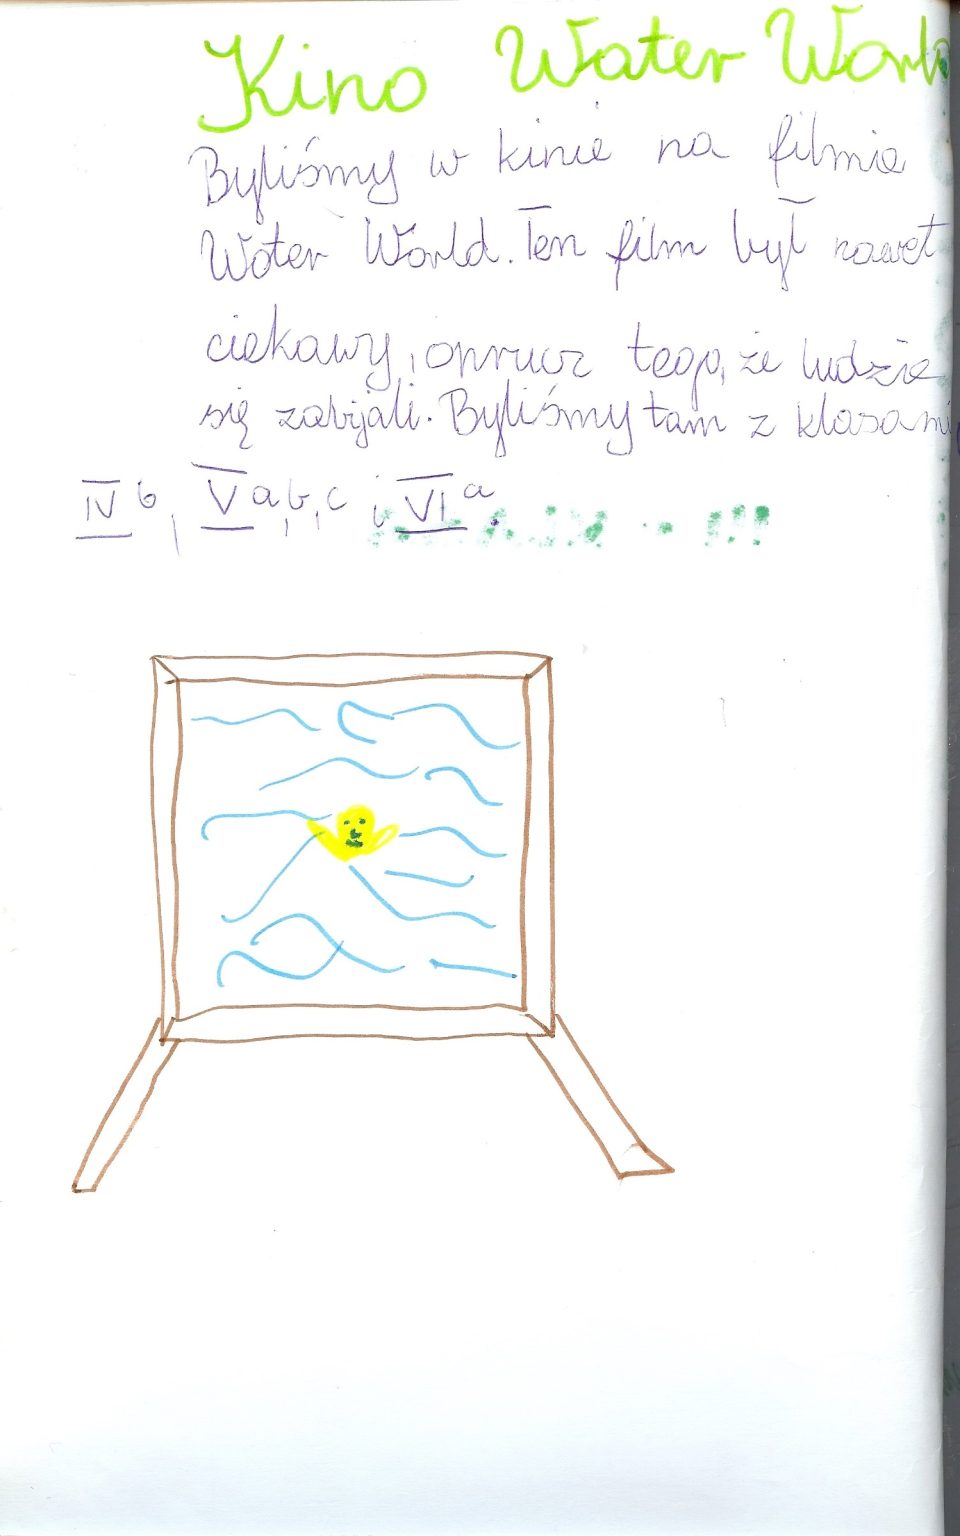 Kino Water World
Byliśmy w kinie na filmie
Woter World. Ten film był nawet
ciekawy, oprucz tego, że ludzie
się zabijali. Byliśmy tam z klasami
IV b, V a, b, c i VI a.